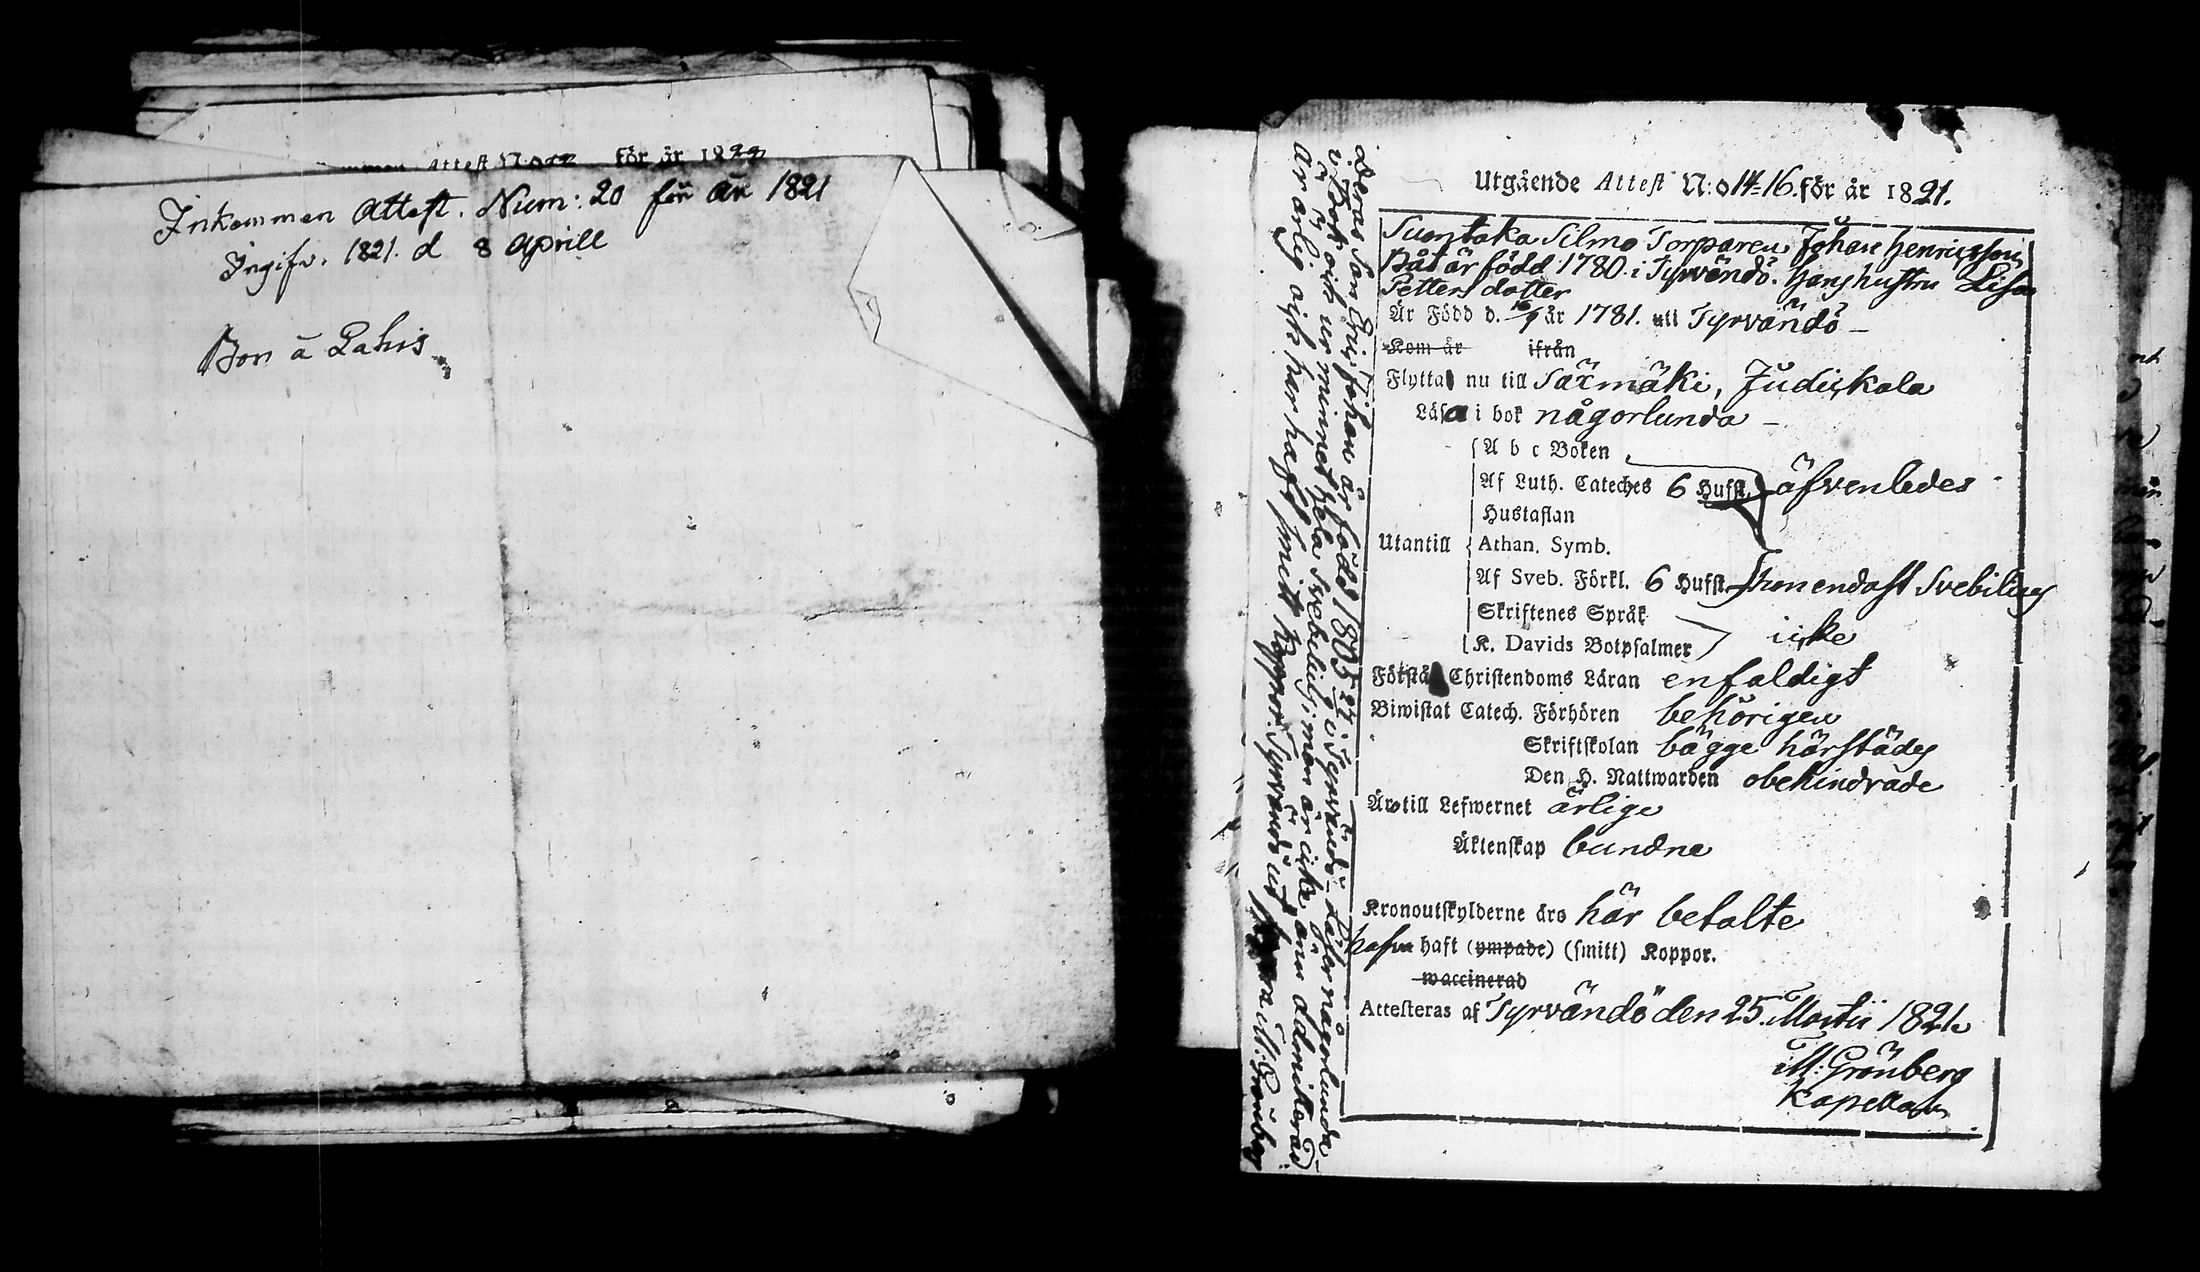 Inkommen Attest. Num: 20 för år 1821
Ingifv. 1821. d 8 Aprill
Bon à Pahis
för år 1822
Utgående Attest N:o 14-16. för år 1821.
Suontaka Silmo Torparen Johan Henricsson
Båt är född 1780. i Tyrvändö. Hans hustru Lisa
Pettersdotter
Är Född d. år 1781. uti Tyrvändö
Kom år ifrån
Flytta nu till Säxmäki, Judickala
Läsa i bok någorlunda
A b c Boken
Af Luth. Cateches 6 Hufst. äfvenledes
Hustaflan
Utantill Athan. Symb.
Af Sveb. Förkl. 6 Hufst. hon endast Svebilius
Skriftenes Språk
K. Davids Botpsalmer icke
Förstå Christendoms Läran enfaldigt
Biwistat Catech. Förhören behörigen
Skriftskolan bägge härstädes
Den H. Nattwarden obehindrade
Äro till Lefwernet ärlige
Äktenskap bundne
Kronoutskylderne äro här betalte
hafva haft (ympade) (smitt) Koppor.
waccinerad
Attesteras af Tyrvändö den 25. Martii 1821.
M: Grönberg
Kapellan
Deras Son Eric Johan är född 1805 i Tyrvändö. Läser någorlunda
i Bok och ur minnet hela Svebilius; men är icke ännu admitterad.
Är ärlig och har haft smitt Koppor. Tyrvändö ut M: Grönberg